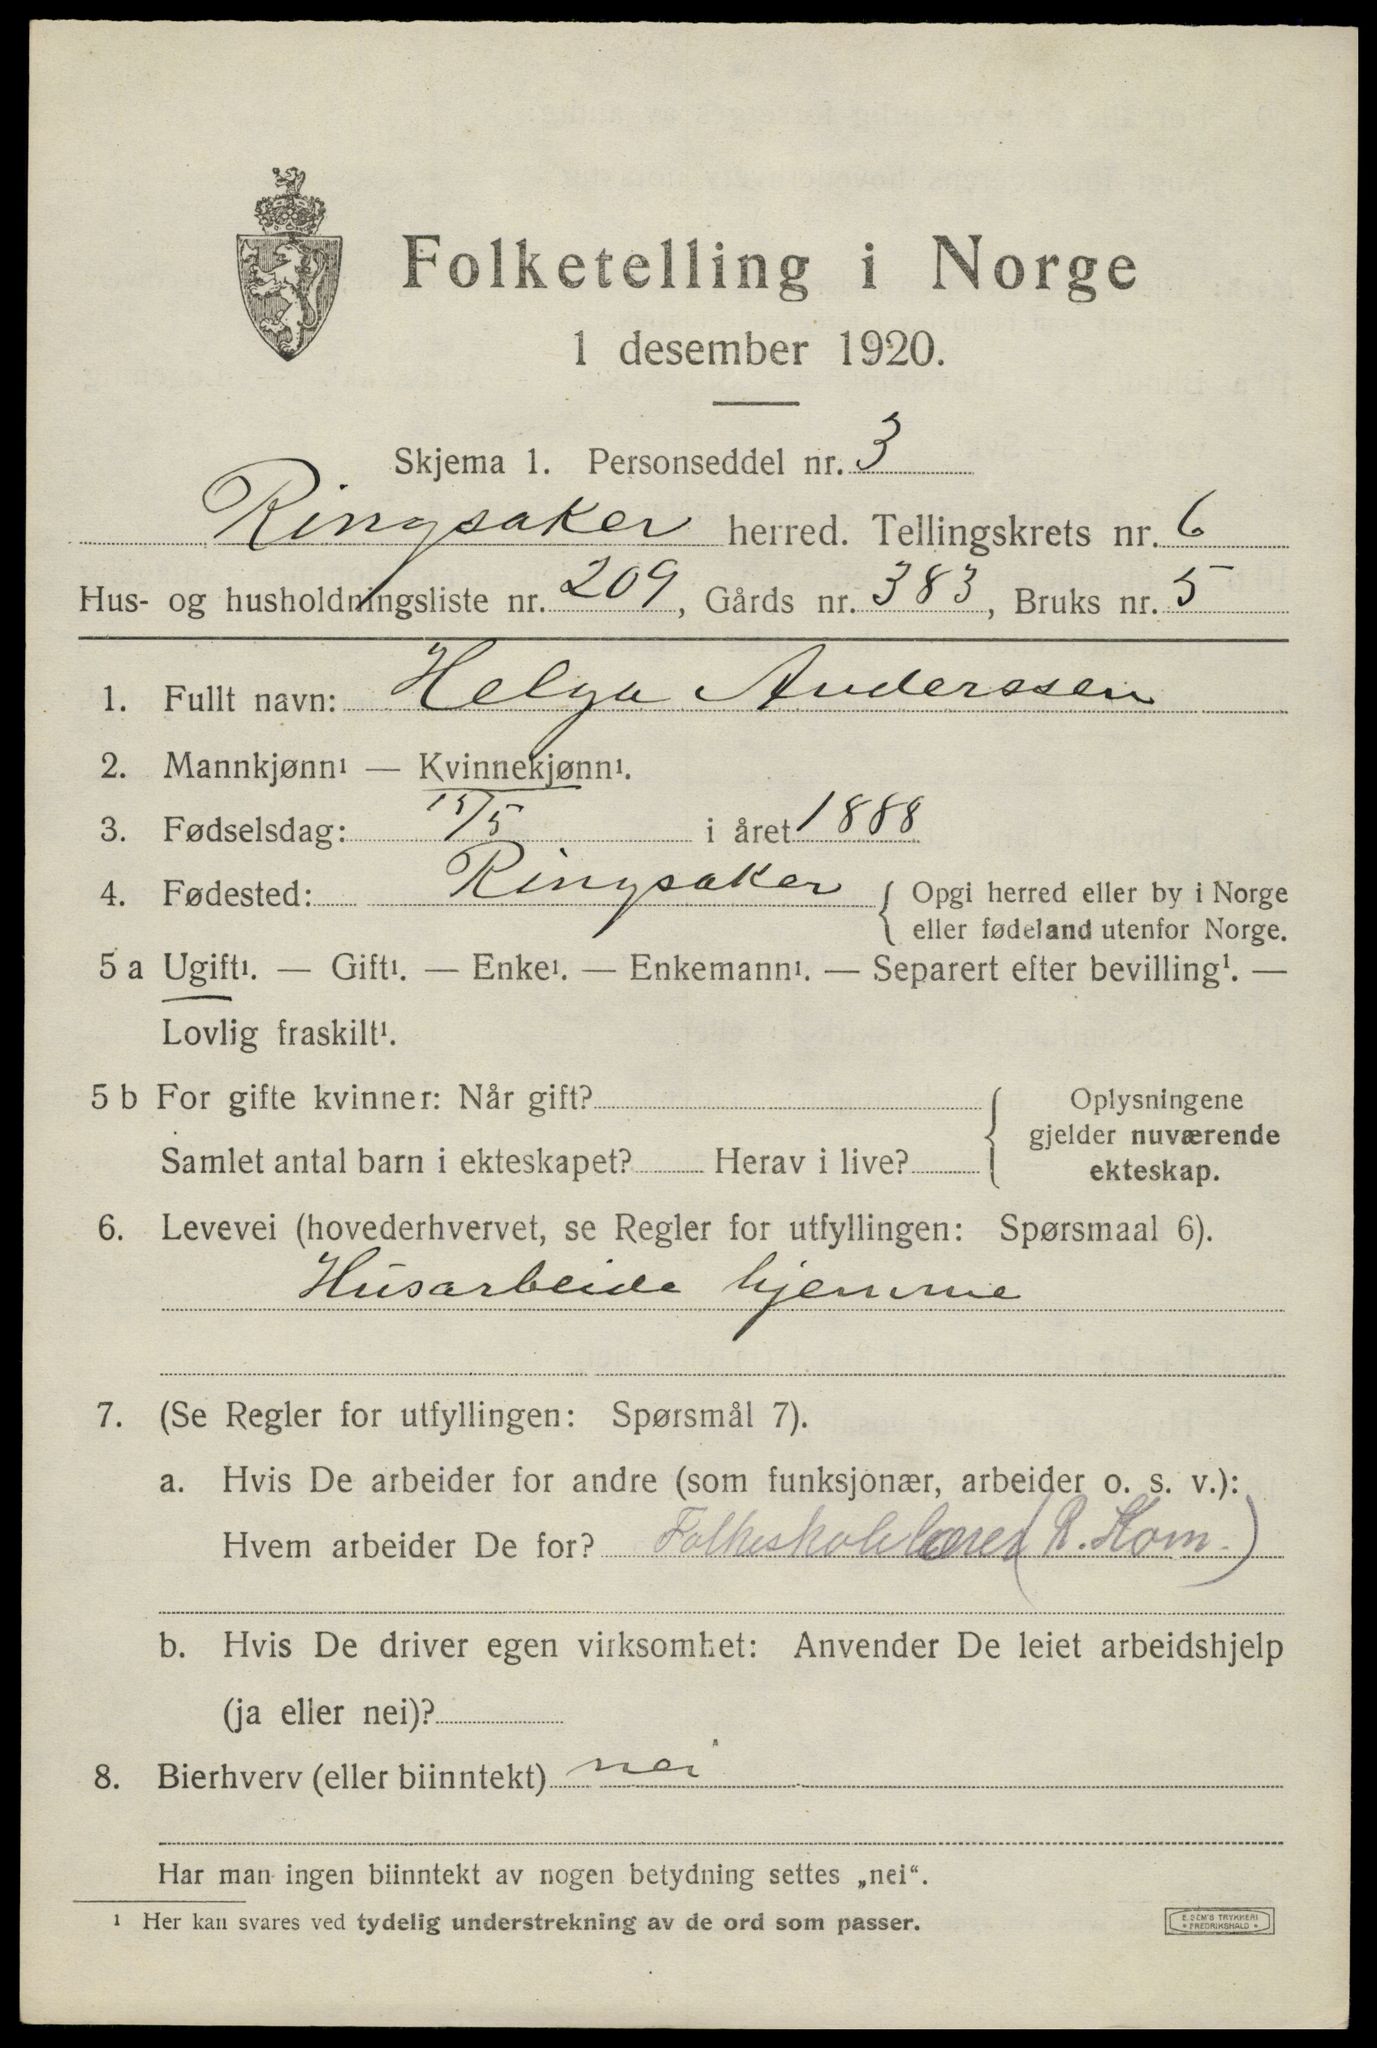 Folketelling i Norge
1 desember 1920.
Skjema 1. Personseddel nr. 3
Ringsaker herred. Tellingskrets nr. 6
Hus- og husholdningsliste nr. 209, Gårds nr. 383, Bruks nr. 5
1. Fullt navn: Helga Anderssen
2. Mannkjønn¹ — Kvinnekjønn¹.
3. Fødselsdag: 15/5 i året 1888
4. Fødested: Ringsaker { Opgi herred eller by i Norge
eller fødeland utenfor Norge.
5 a Ugift¹. — Gift¹. — Enke¹. — Enkemann¹. — Separert efter bevilling¹. —
Lovlig fraskilt¹.
5 b For gifte kvinner: Når gift?
Samlet antal barn i ekteskapet? Herav i live?
Oplysningene
gjelder nuværende
ekteskap.
6. Levevei (hovederhvervet, se Regler for utfyllingen: Spørsmaal 6).
Husarbeide hjemme
7. (Se Regler for utfyllingen: Spørsmål 7).
a. Hvis De arbeider for andre (som funksjonær, arbeider o. s. v.):
Hvem arbeider De for? (R. Kom.)
b. Hvis De driver egen virksomhet: Anvender De leiet arbeidshjelp
(ja eller nei)?
8. Bierhverv (eller biinntekt) nei
Har man ingen biinntekt av nogen betydning settes „nei“.
¹ Her kan svares ved tydelig understrekning av de ord som passer.
E. SEM'S TRYKKERI
FREDRIKSHALD